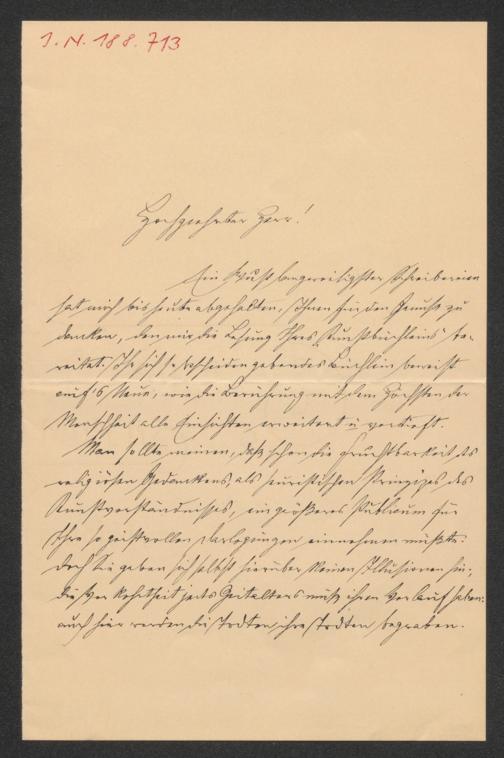 I. N. 188.713
Hochgeehrter Herr!
Ein Wust langweiligster Schreibereien
hat mich bis heute abgehalten, Ihnen für den Genuß zu
danken, den mir die Lesung Ihres „Kunstbüchleins" be-
reitet. Ihr sich so bescheiden gebendes Büchlein beweist
auf's Neue, wie die Berührung mit dem Höchsten der
Menschheit alle Einsichten erweitert u vertieft.
Man sollte meinen, daß schon die Fruchtbarkeit des
religiösen Gedankens, als heuristischen Prinzipes des
Kunstverständnisses, ein größeres Publicum für
Ihre so geistvollen Darlegungen einnehmen müßte.
Doch Sie geben sich selbst hierüber keinen Illusionen hin;
die Verkehrtheit jedes Zeitalters muß ihren Verlauf haben:
auch hier werden die Todten ihre Todten begraben.